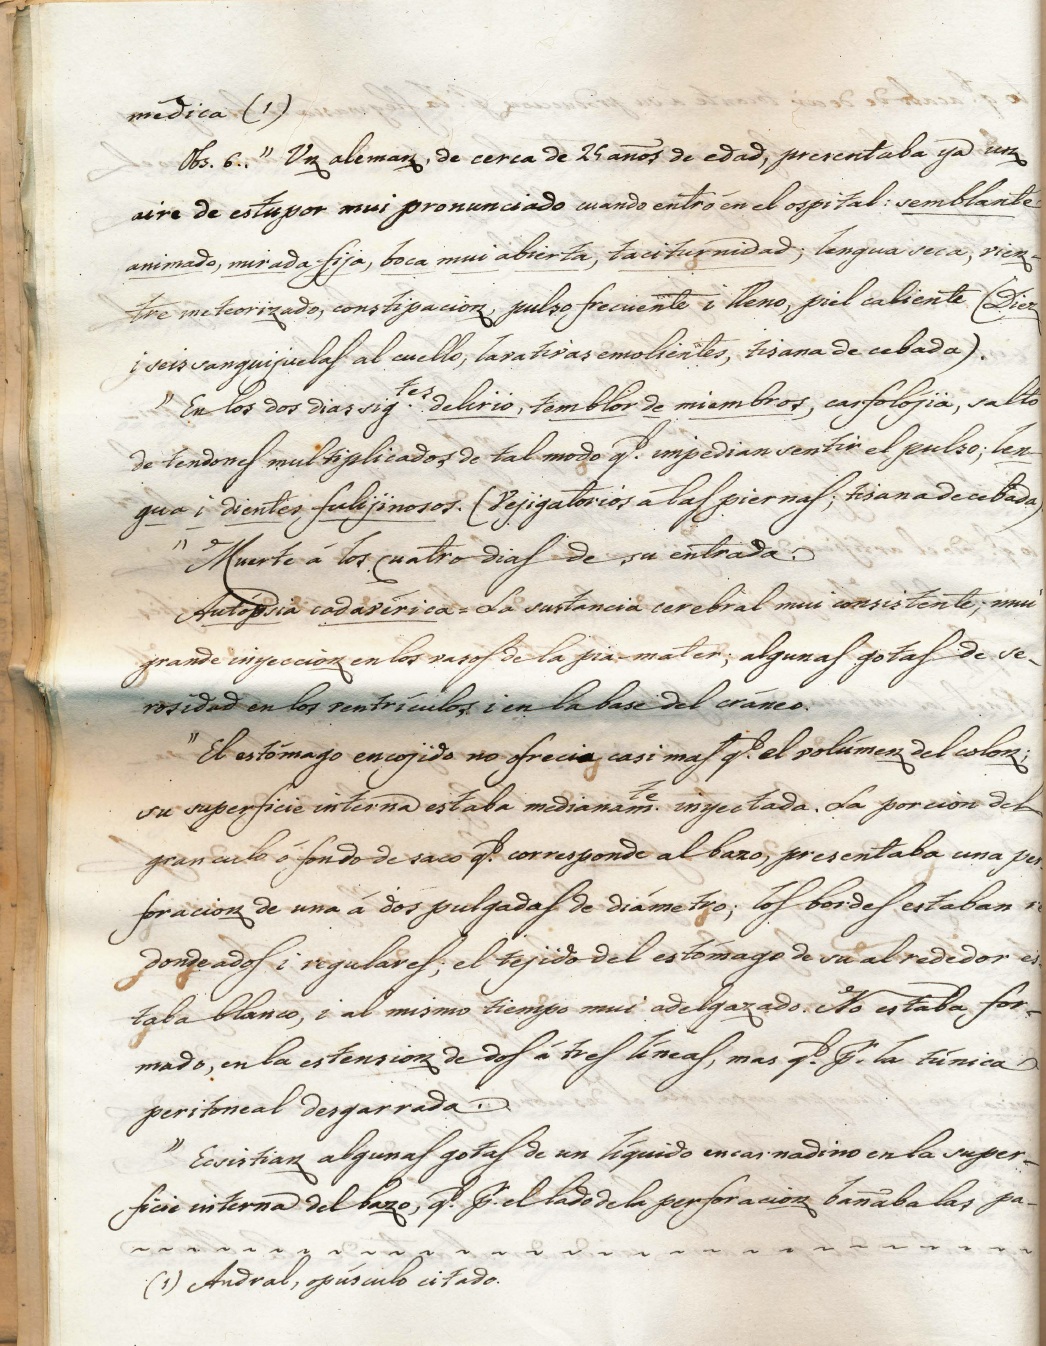 médica (1)
Obs. 6.. " Un aleman, de cerca de 25 años de edad, presentaba ya un
aire de estupor mui pronunciado cuando entró en el ospital: semblante
animado, mirada fija, boca mui abierta, taciturnidad; lengua seca, vien-
tre meteorizado, constipacion, pulso frecuente i lleno, piel caliente (Diez
i seis sanguijuelas al cuello, lavativas emolientes, tisana de cebada).
" En los dos dias sig.tes delirio, temblor de miembros, carfolójia, salto
de tendones multiplicados de tal modo q.e impedian sentir el pulso; len-
gua i dientes fulijinosos. (Vejigatorios á las piernas; tisana de cebada)
" Muerte á los cuatro dias de su entrada.
Autópsia cadavérica = La sustancia cerebral mui consistente; mui
grande inyeccion en los vasos de la pia-mater; algunas gotas de se-
rosidad en los ventrículos, i en la base del cráneo.
" El estómago encojido no ofrecia casi mas q.e el volúmen del colon;
su superficie interna estaba medianam.te inyectada. La porcion del
gran culo ó fondo de saco q.e corresponde al bazo, presentaba una per
foracion de una á dos pulgadas de diámetro; los bordes estaban re
dondeados i regulares; el tejido del estómago de su al rededor es
taba blanco, i al mismo tiempo mui adelgazado. No estaba for-
mado, en la estension de dos á tres líneas, mas q.e p.r la túnica
peritoneal desgarrada.
" Ecsistian algunas gotas de un líquido encarnadino en la super-
ficie interna del bazo, q.e p.r el lado de la perforacion bañaba las pa-
(1) Andral, opúsculo citado.